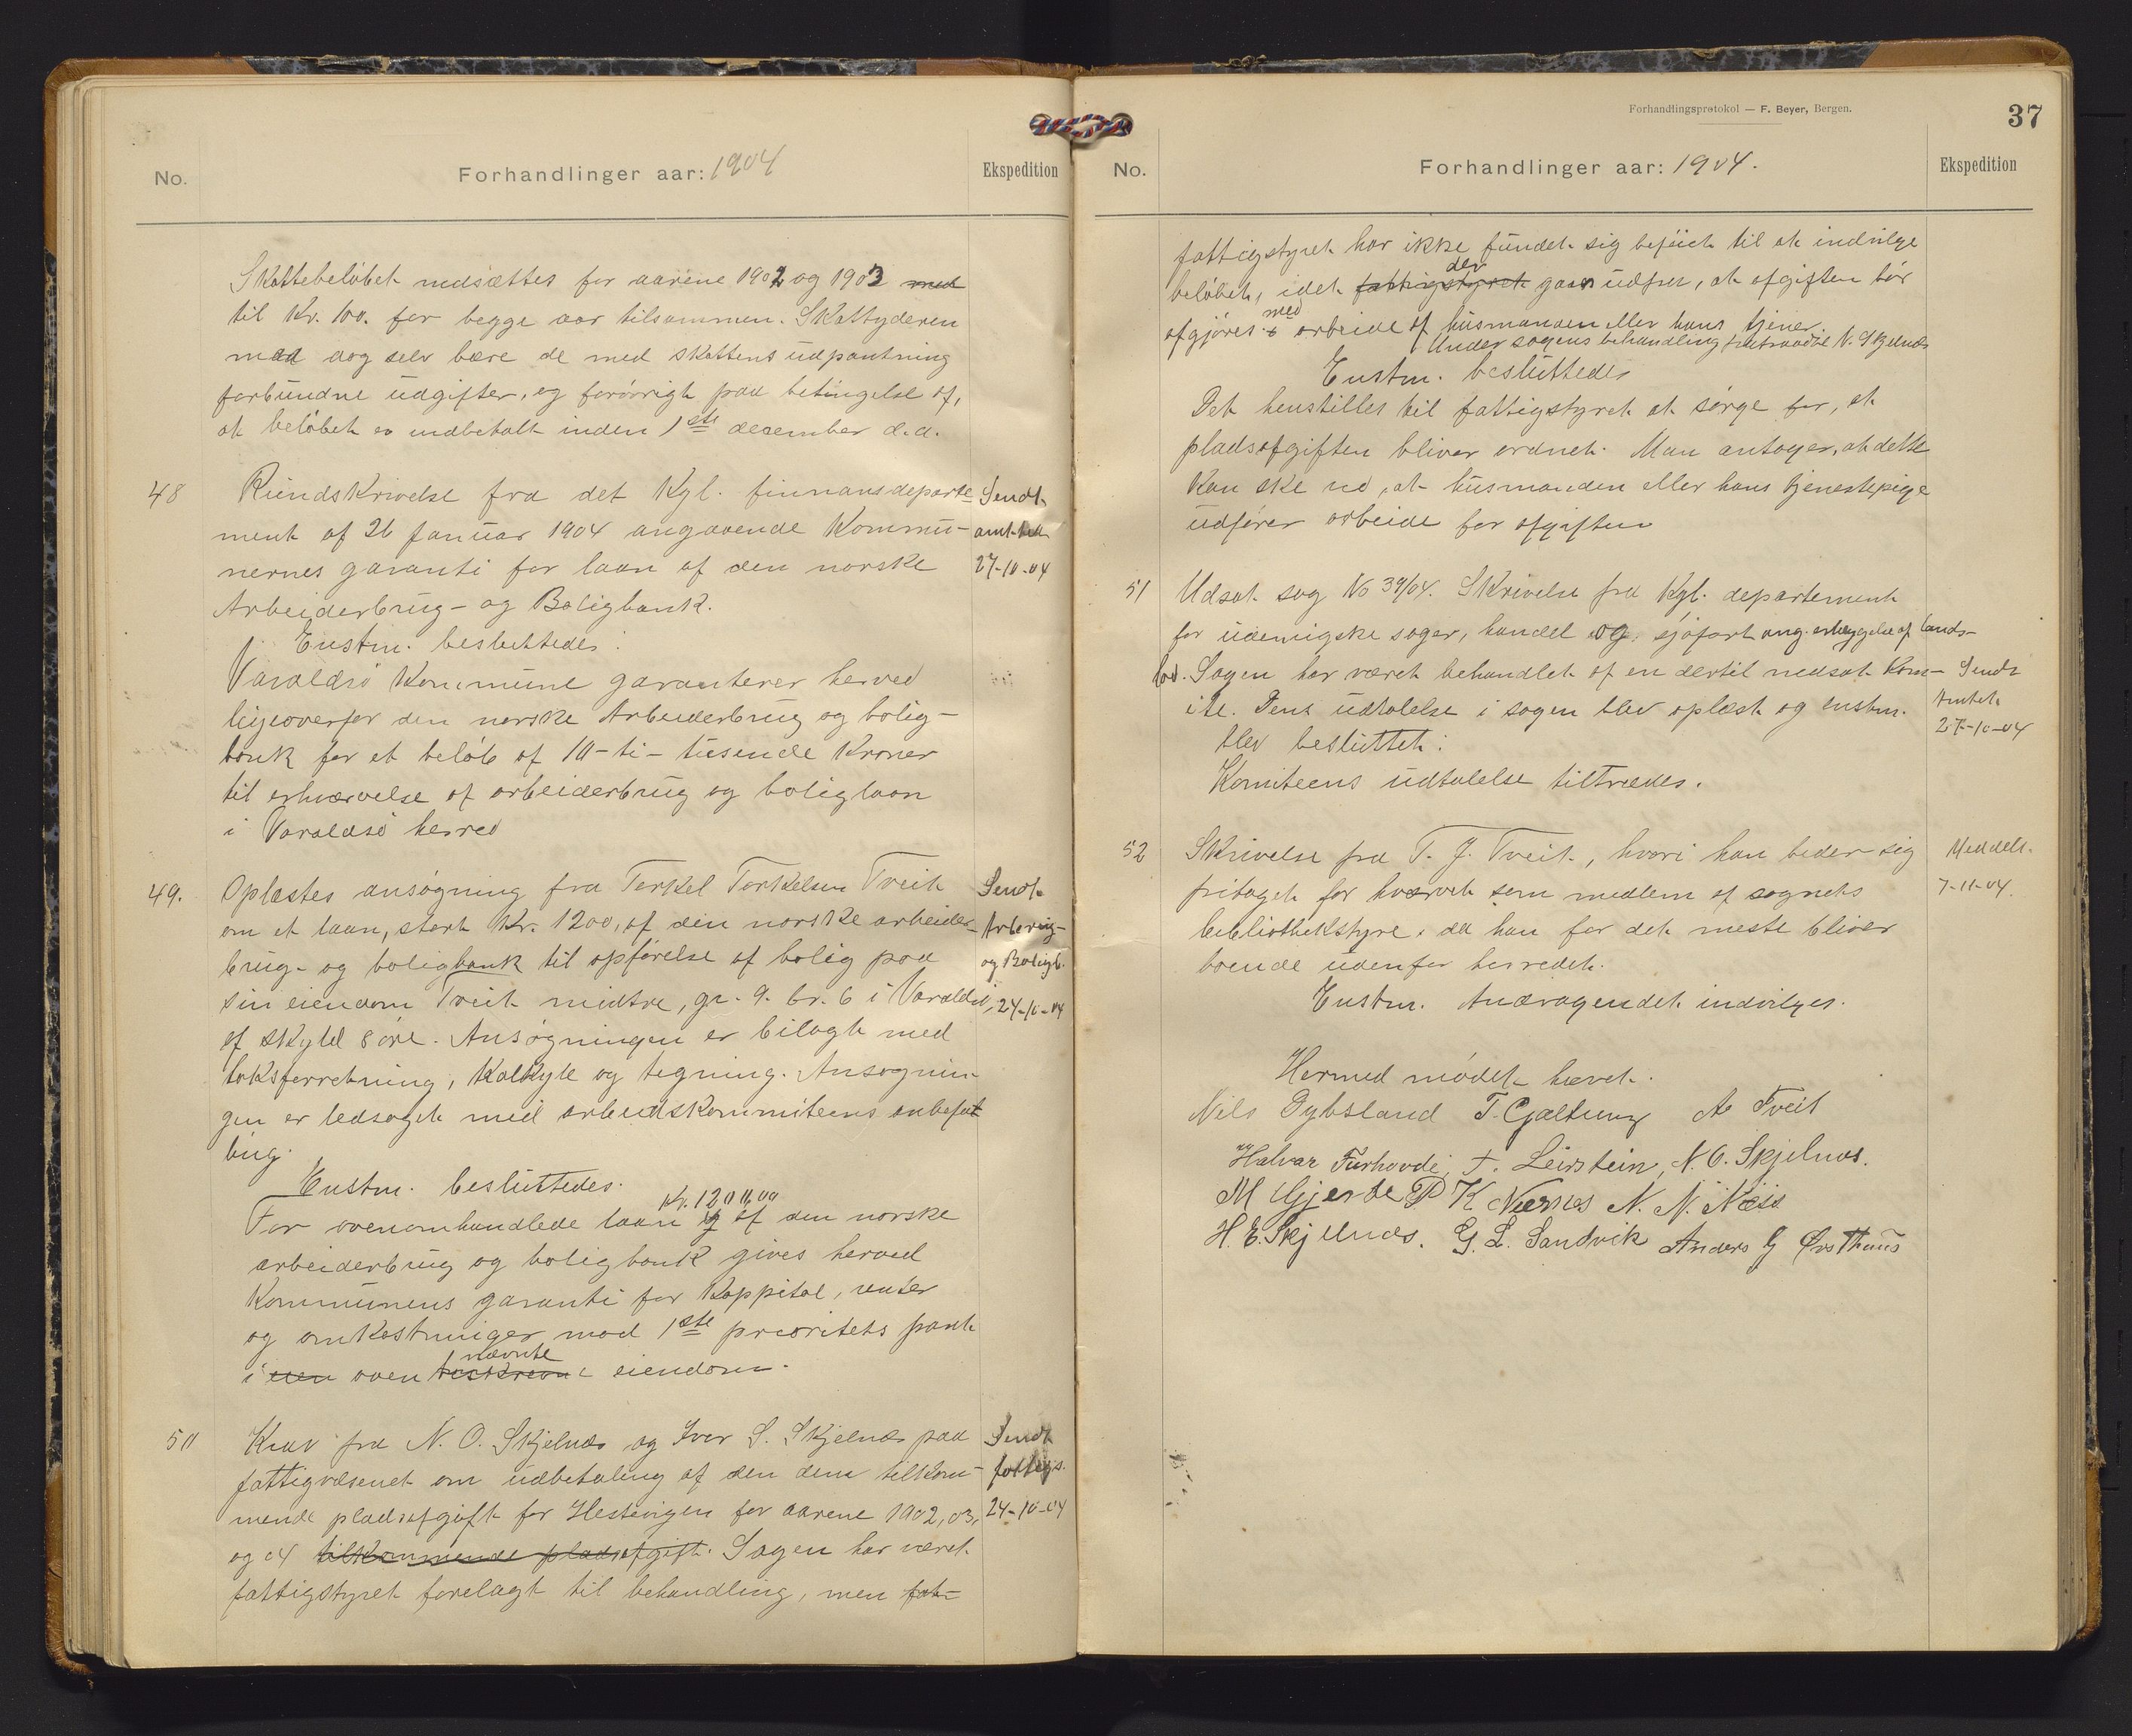 No.
Forhandlinger aar: 1904
Ekspedition
Skattebeløbet nedsættes for aarene 1902 og 1903 med
til Kr. 100. for begge aar tilsammen. Skattyderen
maa dog selv bære de med skattens udpantning
forbundne udgifter, og forøvrigt paa betingelse af,
at beløbet er indbetalt inden 1ste december d.a.
48 Rundskrivelse fra det Kgl. finnansdeparte-
ment af 26 Januar 1904 angaaende Kommu-
nernes garanti for laan af den norske
Arbeiderbrug- og Boligbank.
Sendt
amtet
27-10-04
Enstm. besluttedes:
Varaldsø Kommune garanterer herved
ligeoverfor den norske Arbeiderbrug og bolig-
bank for et beløb af 10-ti-tusende Kroner
til erhvervelse af arbeiderbrug og boliglaan
i Varaldsø herred
49. Oplæstes ansøgning fra Terkel Torkelsen Tveit
om et laan, stort Kr. 1200, af den norske arbeider-
brug- og boligbank til opførelse af bolig paa
sin eiendom Tveit midtre, gr. 9. br. 6 i Varaldsø,
af skyld 8 øre. Ansøgningen er bilagt med
taksforretning, Kalkyle og tegning. Ansøgnin-
gen er ledsaget med arbeidskommiteens anbefal-
ing.
Sendt
Arbbrug-
og Boligb.
24-10-04
Enstm. besluttedes.
Kr. 1200,00
For ovenomhandlede laan af den norske
arbeiderbrug og boligbank gives herved
Kommunens garanti for Kappital, renter
og omkostninger mod 1ste prioritets pant
nævnte
i den oven beskrevne eiendom.
50 Krav fra N. O. Skjelnæs og Iver S. Skjelnæs paa
fattigvæsenet om udbetaling af den dem tilkom-
mende pladsafgift for Hestevigen for aarene 1902, 03,
og 04 tilkommende pladsafgift. Sagen har været
fattigstyret forelagt til behandling, men fat-
Sendt
fattigs.
24-10-04
Forhandlingsprotokol — F. Beyer, Bergen.
37
No.
Forhandlinger aar: 1904.
Ekspedition
fattigstyret har ikke fundet sig beføiet til at indvilge
der
beløbet, idet fattigstyret gaar ud fra, at afgiften bør
med
afgjøres arbeide af husmanden eller hans tjener.
Under sagens behandling fratraadte N. Skjelnæs
Enstm. besluttedes
Det henstilles til fattigstyret at sørge for, at
pladsafgiften bliver ordnet. Man antager, at dette
Kan ske ved, at husmanden eller hans tjenestepige
udfører arbeide for afgiften
51 Udsat sag No 39/04. Skrivelse fra Kgl. departement
for udenrigske sager, handel og sjøfart ang. erlæggelse af lands-
lod. Sagen har været behandlet af en dertil nedsat Kom-
ite. Dens udtalelse i sagen blev oplæst og enstm.
blev besluttet:
Komiteens udtalelse tiltrædes.
Sendt
Amtet
27-10-04
52 Skrivelse fra T. J. Tveit, hvori han beder sig
fritaget for hvervet som medlem af sognets
bibliothekstyre, da han for det meste bliver
boende udenfor herredet.
Enstm. Andragendet indvilges.
Meddelt.
7-11-04.
Hermed mødet hævet.
Nils Dybsland T. Gjeltung A Tveit
Halvar Furhovde, T. Leirstein, N. O. Skjelnæs.
M Gjerde P K Nernes N. N. Næss
H. E. Skjelnæs. G. L. Sandvik Anders G Østhus